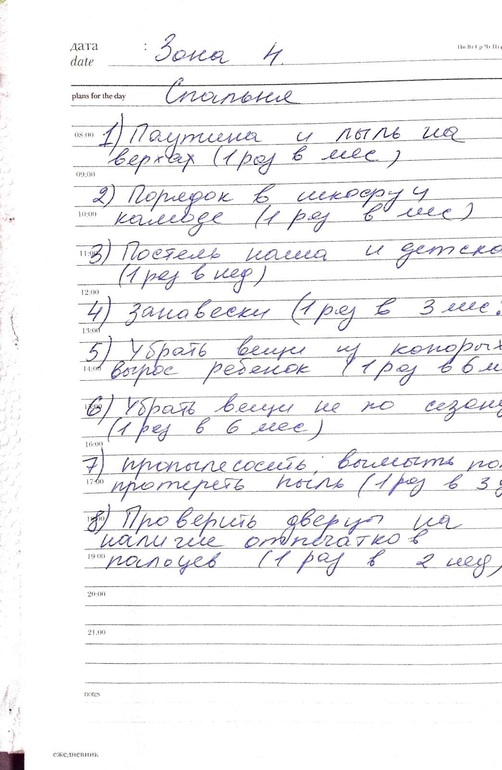 дата : Зона 4.
date
plans for the day Спальня
08:00 1) Паутина и пыль на
верхах (1 раз в мес)
09:00
2) Порядок в шкафу и
10:00 камоде (1 раз в мес)
11:00 3) Постель наша и детска
(1 раз в нед)
12:00
4) Занавески (1 раз в 3 мес.
13:00
5) Убрать вещи из которых
14:00 вырос ребенок (1 раз в 6 м
6) Убрать вещи не по сезону
(1 раз в 6 мес)
16:00
7) пропылесосить, вымыть по
17:00 протереть пыль (1 раз в 3
8) Проверить дверцы на
наличие отпечатков
19:00 пальцев (1 раз в 2 нед)
20:00
21:00
notes
ежедневник